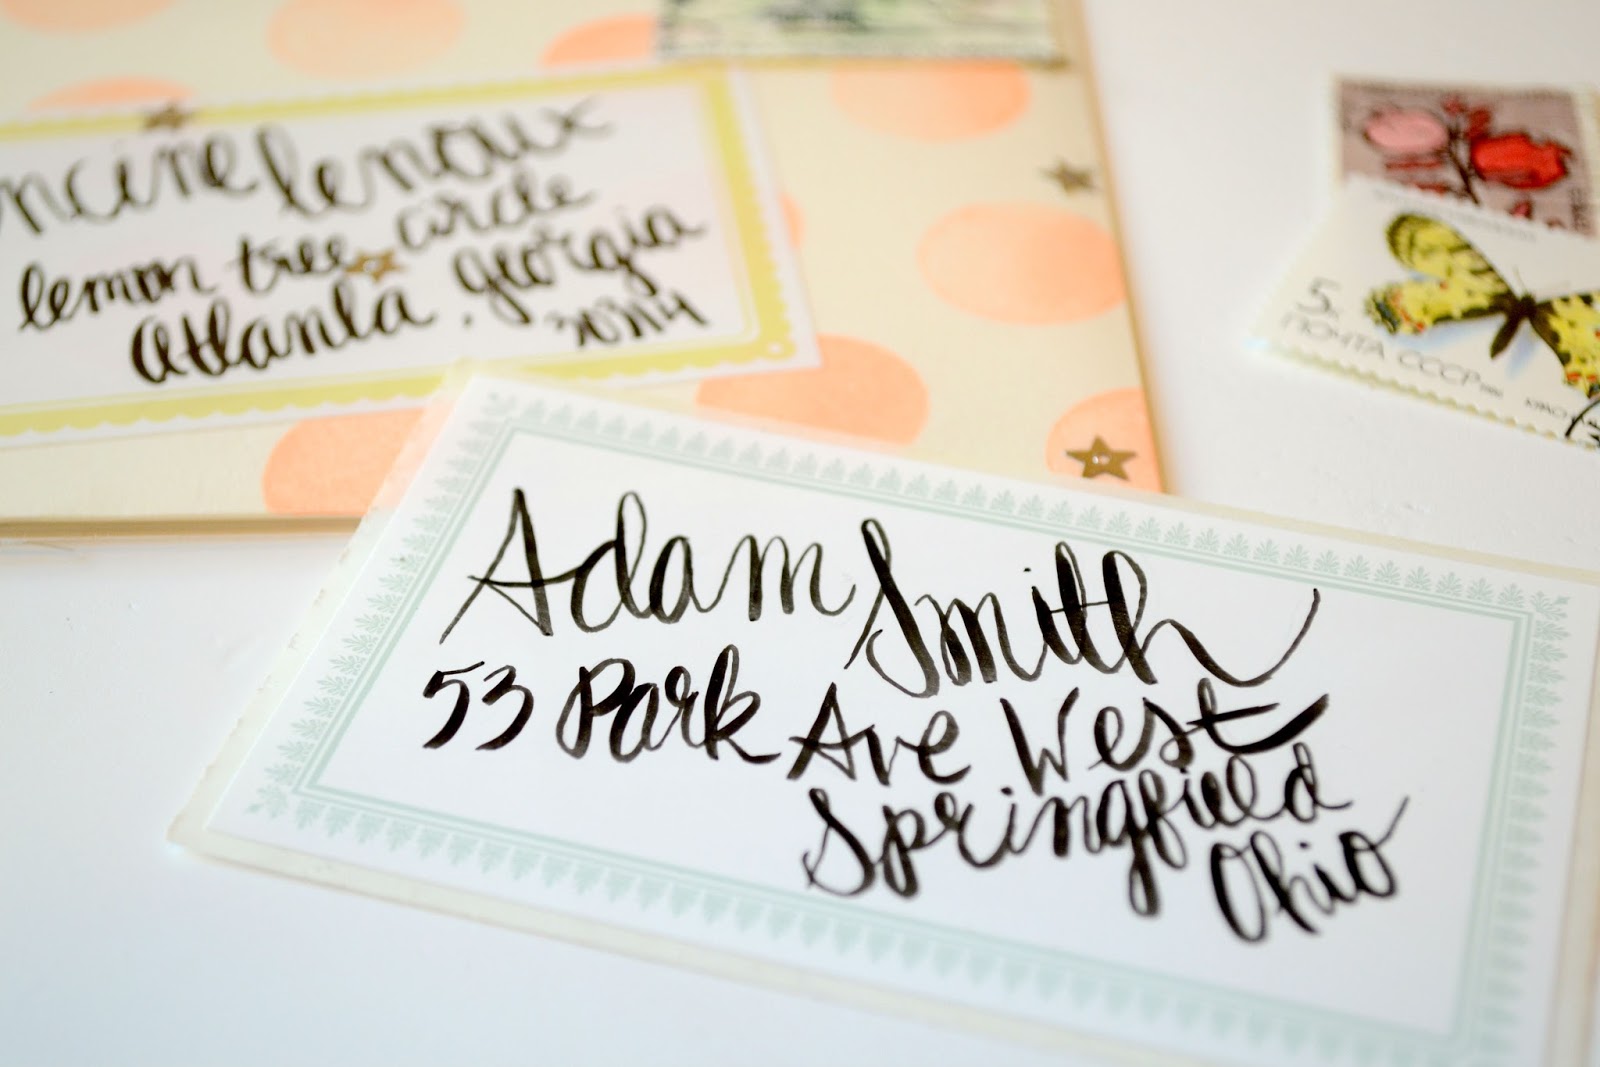 lenoux
lemon tree circle
Atlanta, georgia
Adam Smith
53 Park Ave West
Springfield
Ohio
5к
ПОЧТА СССР